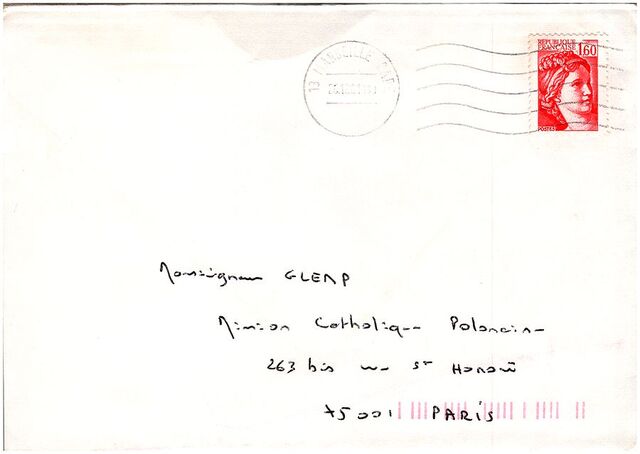 RÉPUBLIQUE
FRANÇAISE 1,60
POSTES
13
Monseigneur GLEMP
Mission Catholique Polonaise
263 bis rue St Honoré
75001 PARIS